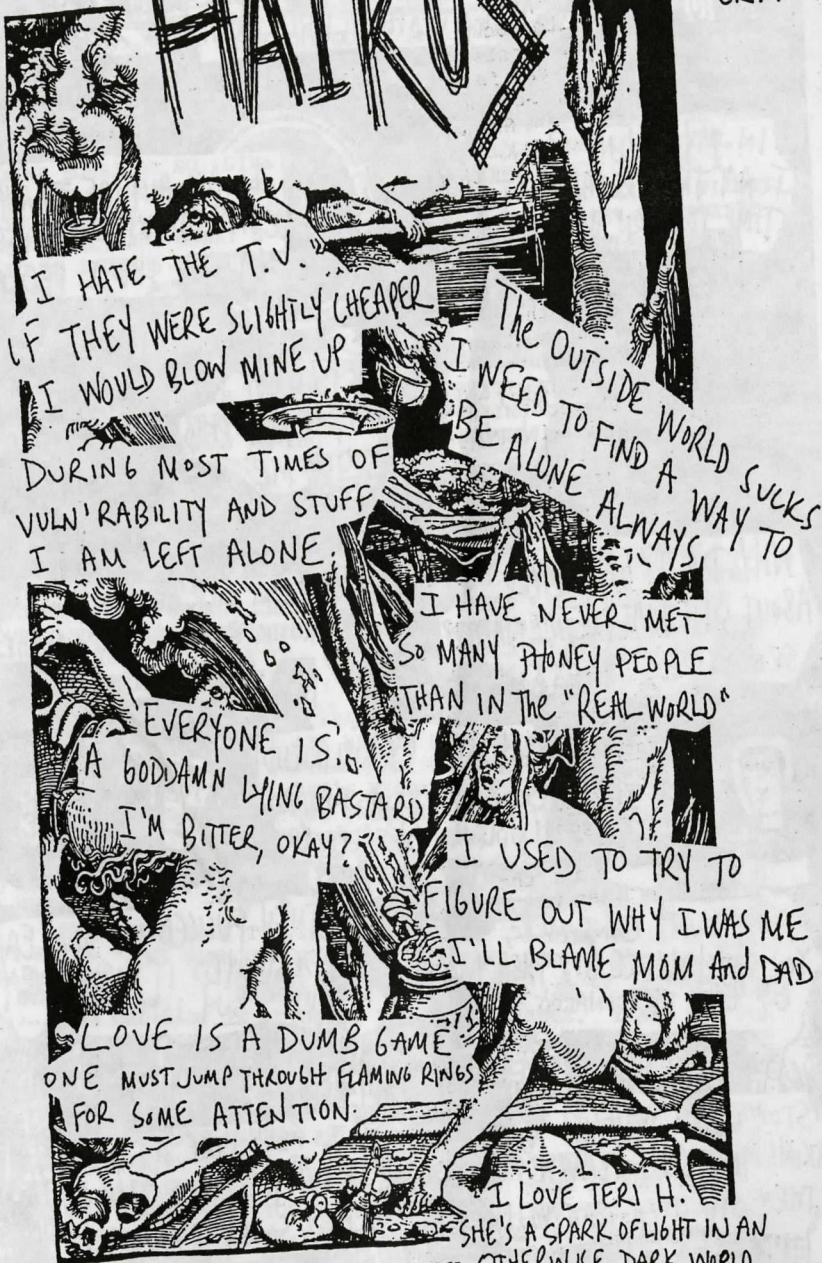 HAIKUS
I HATE THE T.V.
IF THEY WERE SLIGHTLY CHEAPER
I WOULD BLOW MINE UP
The OUTSIDE WORLD SUCKS
I NEED TO FIND A WAY TO
BE ALONE ALWAYS
DURING MOST TIMES OF
VULN'RABILITY AND STUFF
I AM LEFT ALONE.
I HAVE NEVER MET
SO MANY PHONEY PEOPLE
THAN IN The "REAL WORLD"
EVERYONE IS
A GODDAMN LYING BASTARD
I'M BITTER, OKAY?
I USED TO TRY TO
FIGURE OUT WHY I WAS ME
I'LL BLAME MOM And DAD
LOVE IS A DUMB GAME
ONE MUST JUMP THROUGH FLAMING RINGS
FOR SOME ATTENTION.
I LOVE TERI H.
SHE'S A SPARK OF LIGHT IN AN
OTHERWISE DARK WORLD